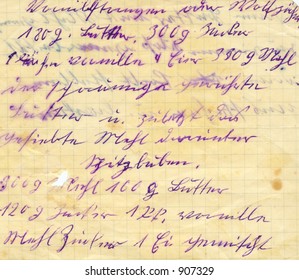 Vanillstangen oder
120 g. Butter, 300 g Zucker
vanille 4 Eier 350 Mehl
schaumige gerührte
Butter u. zuletzt das
gesiebte Mehl darunter
Spitzbuben.
300 g Mehl 160 g Butter
120 g Zucker 1 Pk. vanille
Mehl Zucker 1 Ei gemischt
shutterstock.com · 907329